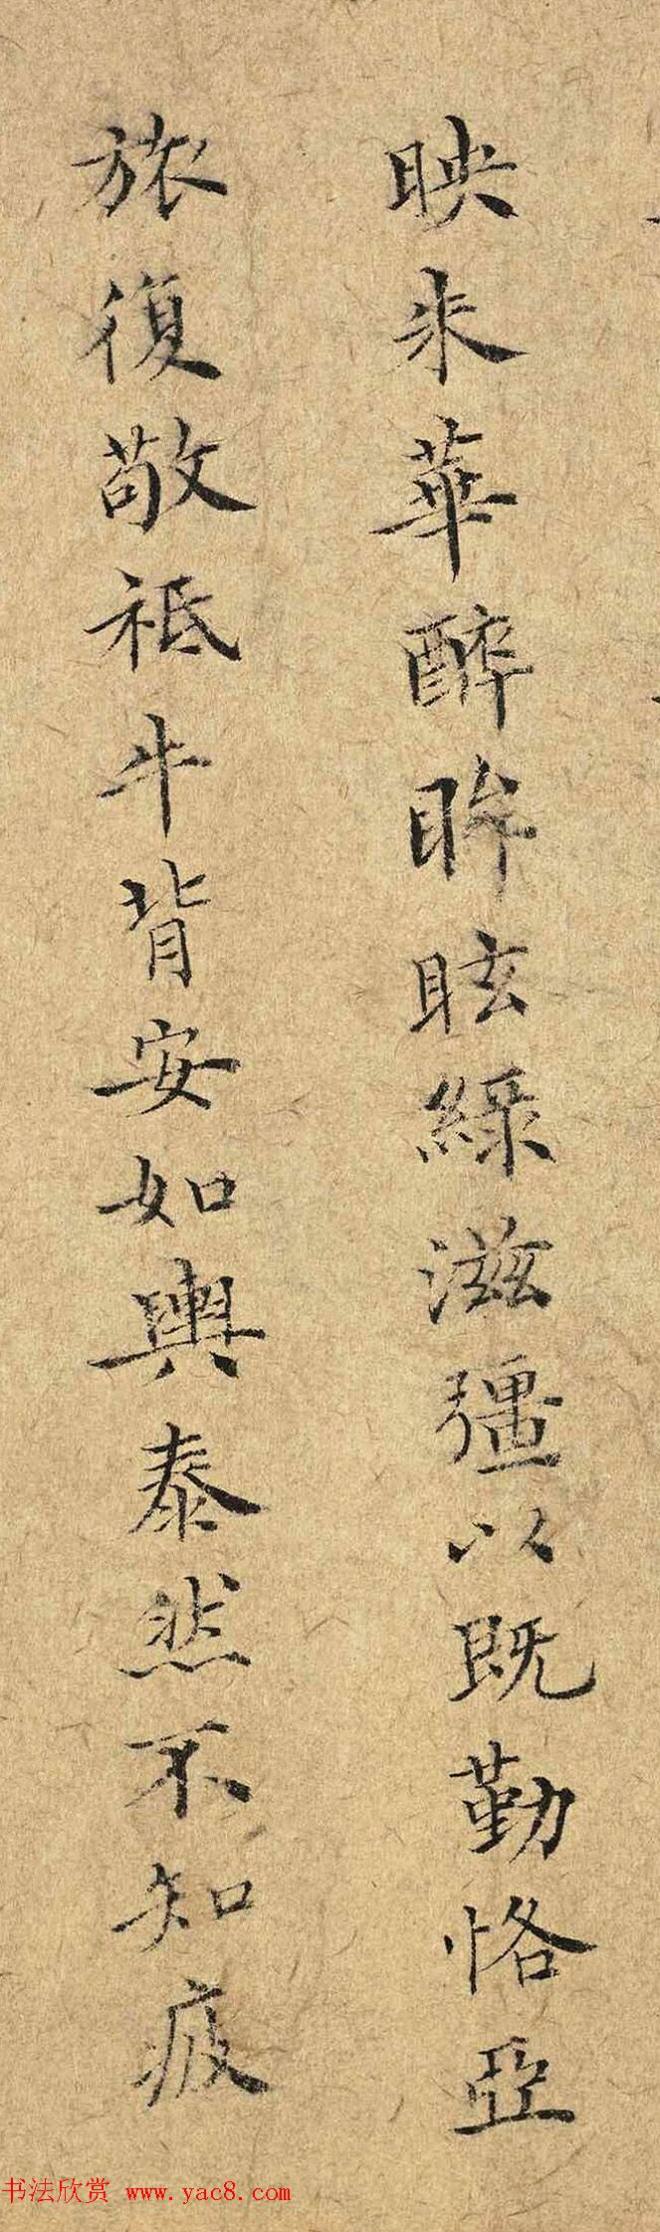 映来華醉眸眩綠滋彊以既勤恪亞
旅復敬祗牛背安如輿泰然不知疲
书法欣赏 www.yac8.com